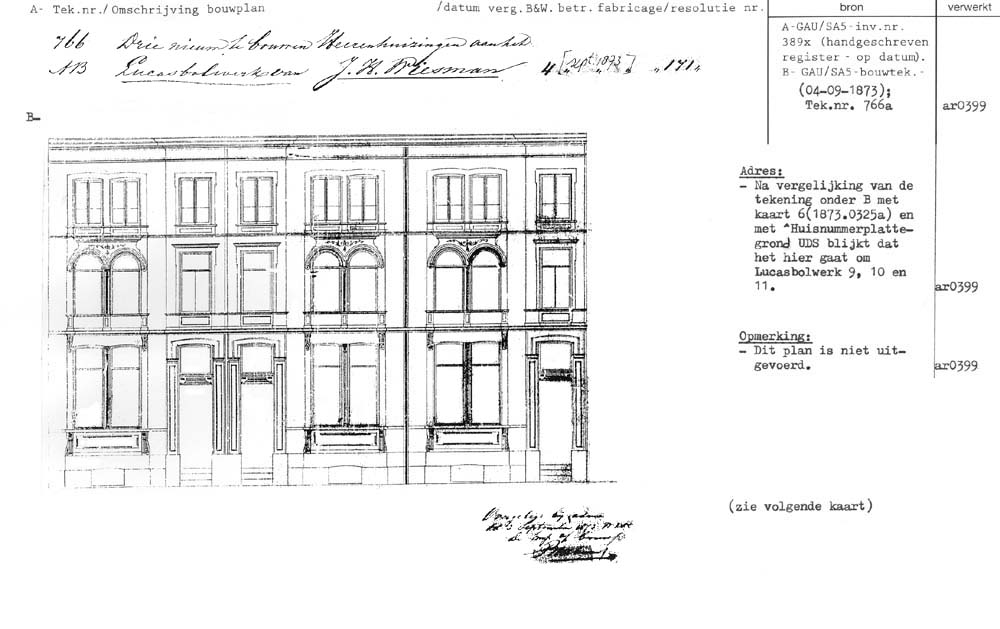 A- Tek.nr./Omschrijving bouwplan /datum verg.B&W.betr.fabricage/resolutie nr.
bron
verwerkt
766 Drie nieuw te bouwen Heerenhuizingen aan het
AB Lucasbolwerk van J.H. Wiesman 4 [sept. 1873] „171„
A-GAU/SA5-inv.nr.
389x (handgeschreven
register - op datum).
B- GAU/SA5-bouwtek.-
(04-09-1873);
Tek.nr. 766a
ar0399
B-
Adres:
- Na vergelijking van de
tekening onder B met
kaart 6(1873.0325a) en
met ^Huisnummerplatte-
grond UDS blijkt dat
het hier gaat om
Lucasbolwerk 9, 10 en
11.
ar0399
Opmerking:
- Dit plan is niet uit-
gevoerd.
ar0399
(zie volgende kaart)
September